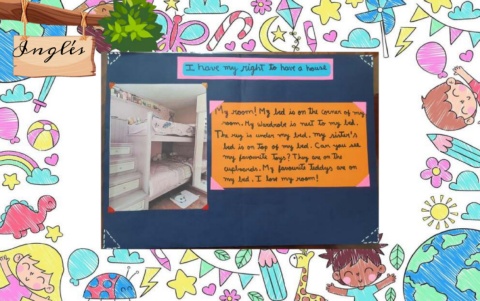 Inglés
I have my right to have a house
My room! My bed is on the corner of my
room. My wardrobe is next to my bed.
The rug is under my bed. My sister's
bed is on top of my bed. Can you see
my favourite toys? They are on the
cupboards. My favourite teddys are on
my bed. I love my room!